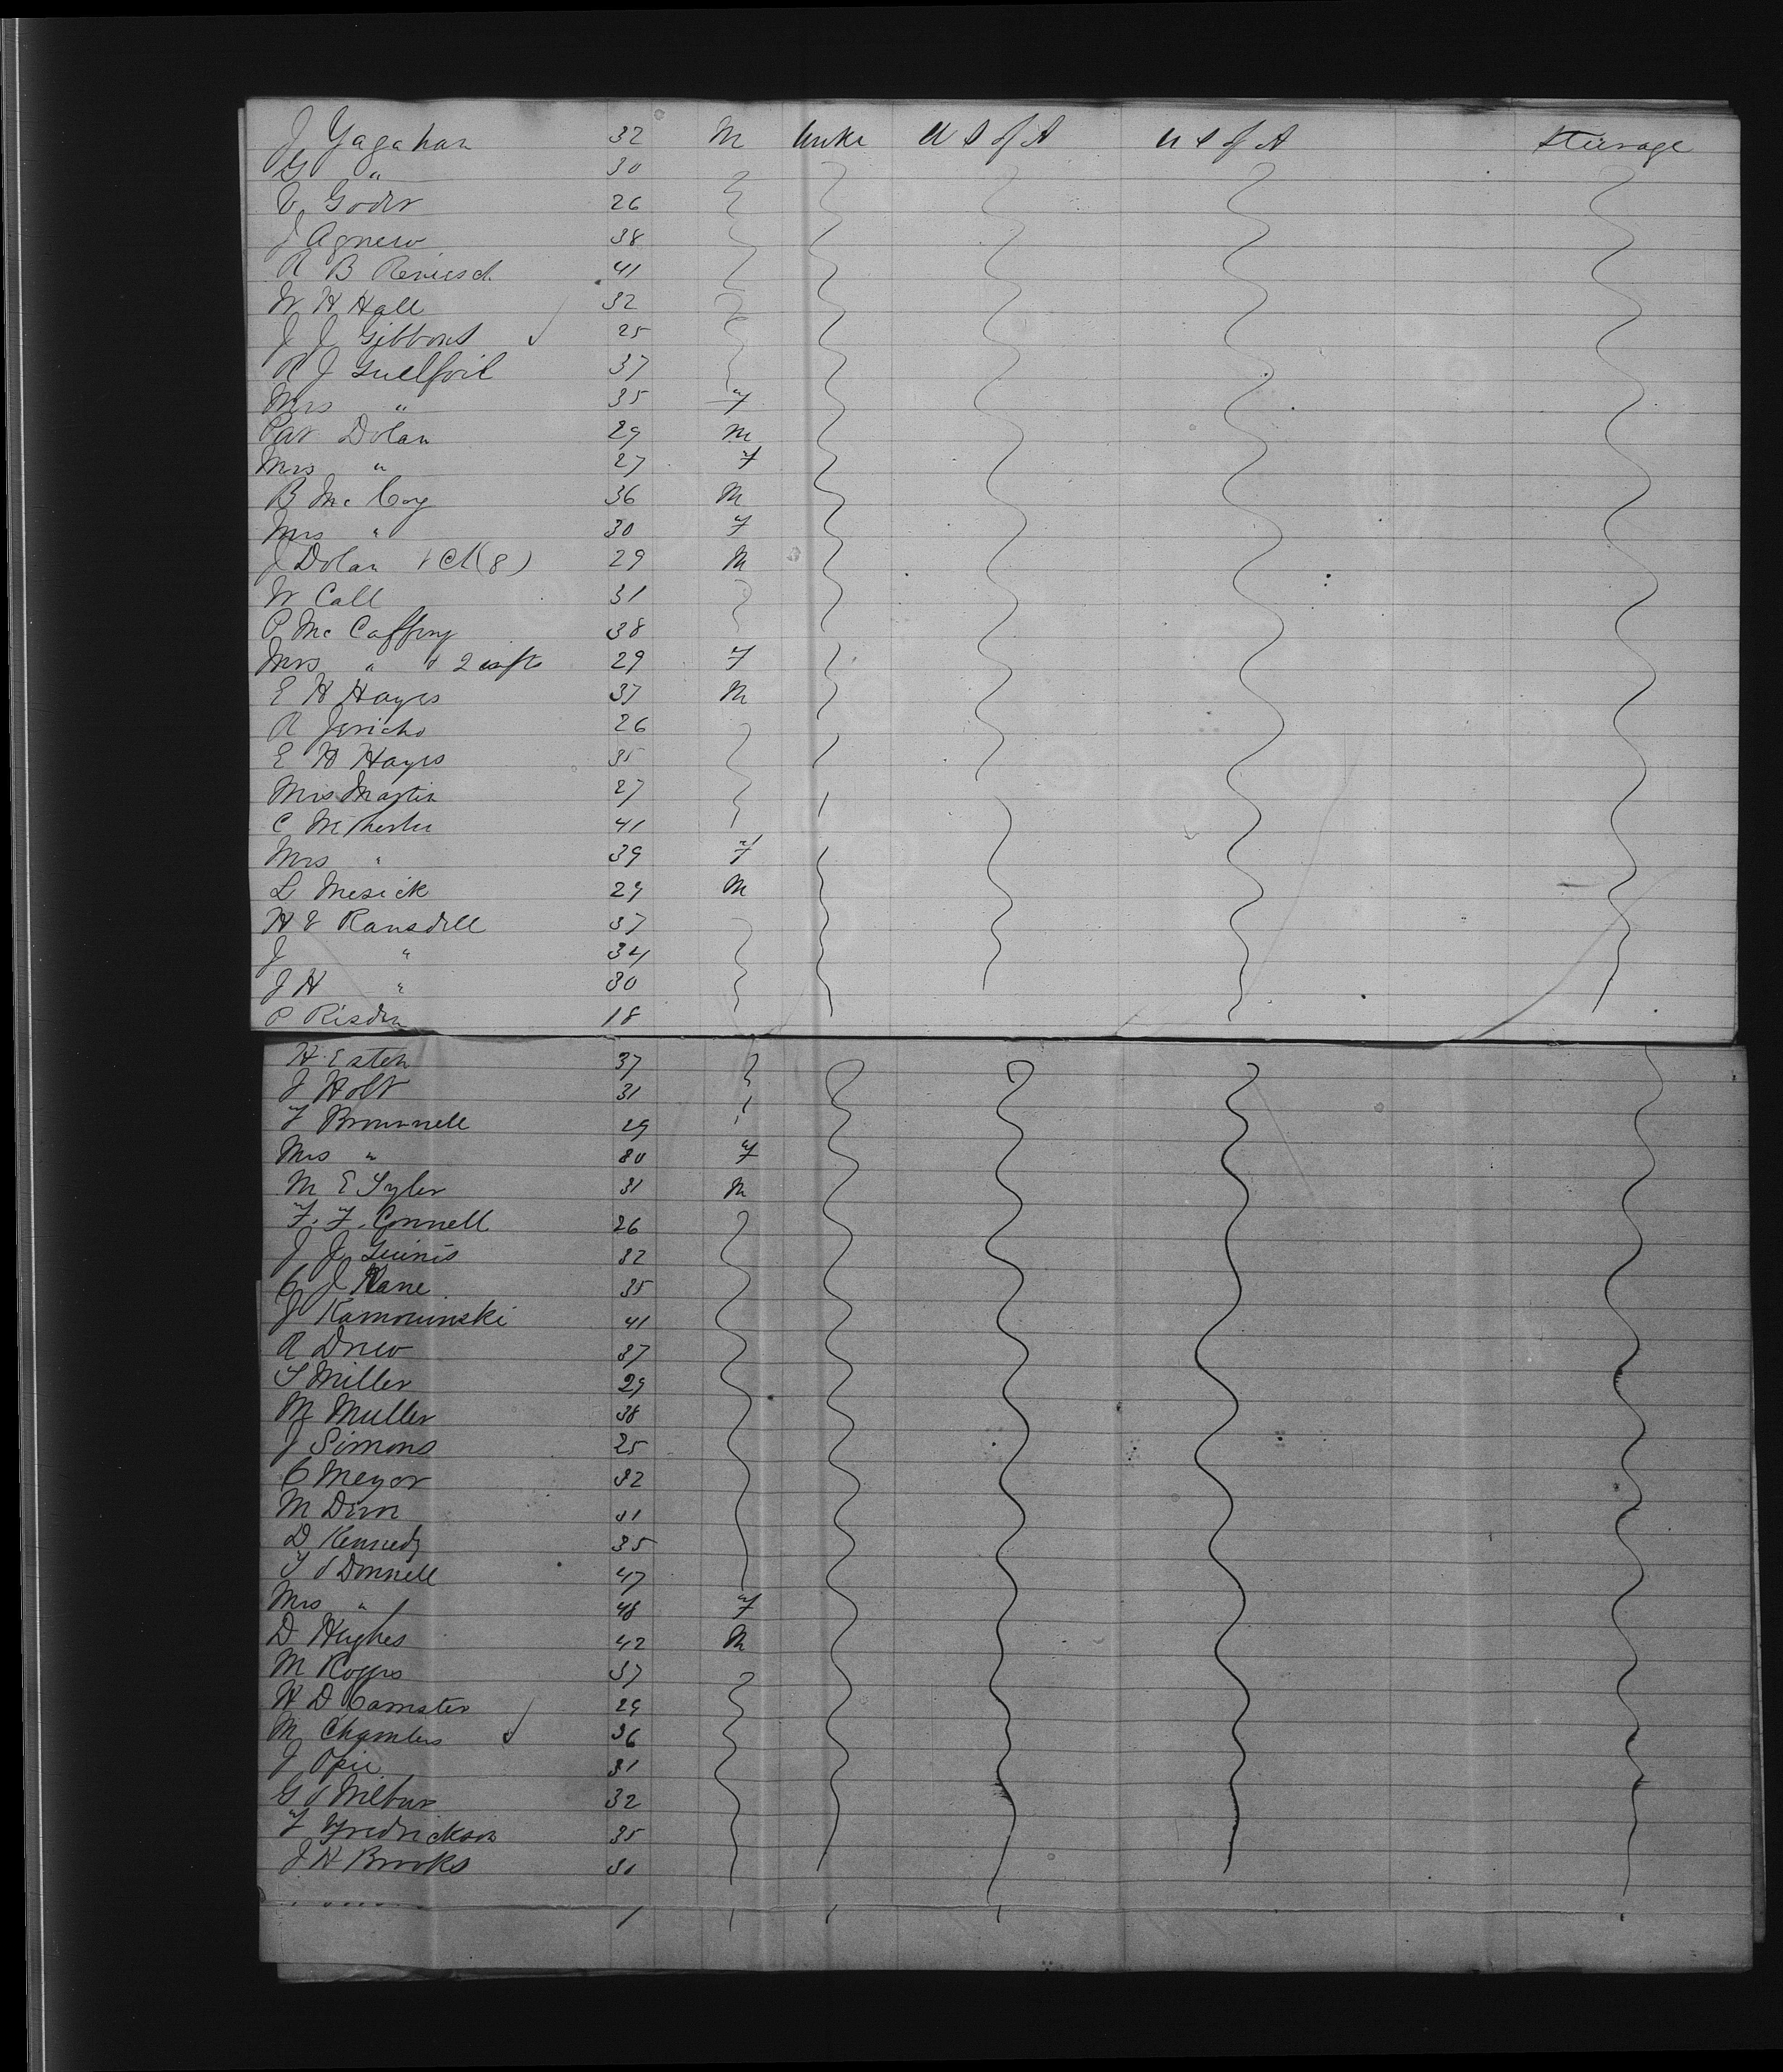 J Gagahan 32 M Unkn U S of A U S of A Steerage
G " 30
V Goder 26
J Agnew 38
R B 41
W H Hall 32
J J Gibbons 25
R J Guelfoil 37
Mrs " 35 F
Pat Dolan 29 M
Mrs " 27 F
B Mc Coy 36 M
Mrs " 30 F
J Dolan & Ch (8) 29 M
W Call 31
P Mc Caffrey 38
Mrs " & 2 infts 29 F
E H Hayes 37 M
R Jericho 26
E H Hayes 35
Mrs Martin 27
C 41
Mrs " 39 F
L Mesick 29 M
H E Ransdell 37
J " 34
J H " 30
P Risdon 18
H Esten 37
J Holt 31
F Brownell 29
Mrs " 30 F
M E Tyler 31 M
F. F. Connell 26
J J Guinis 32
C J Kane 35
J Kamouinski 41
R Drew 37
T Miller 29
M Muller 38
J Simons 25
C Meyer 32
M 31
D Kennedy 35
T O Donnell 47
Mrs " 48 F
D Hughes 42 M
M Rogers 37
H D Camster 29
M Chambers 36
J Opie 31
G O Wilbur 32
F Fredrickson 35
J H Brooks 31